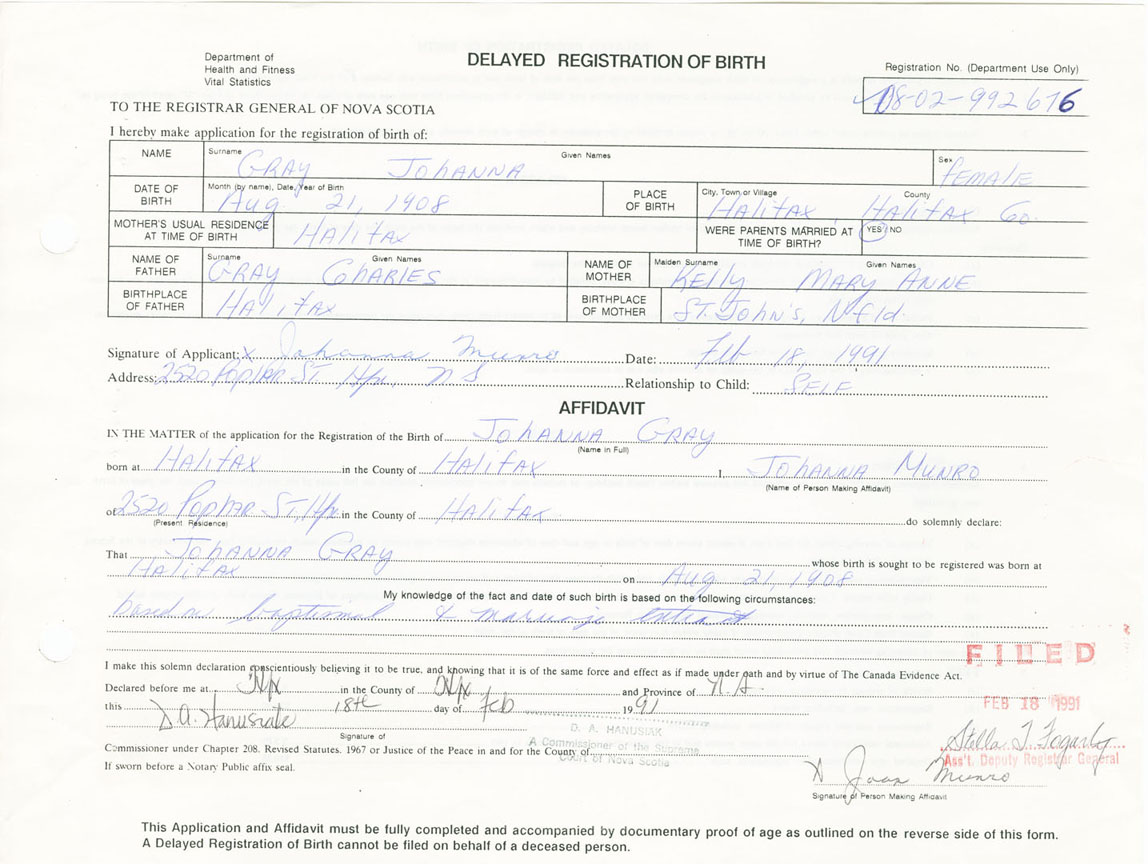 Department of
Health and Fitness
Vital Statistics
DELAYED REGISTRATION OF BIRTH
Registration No. (Department Use Only)
08-02-992676
TO THE REGISTRAR GENERAL OF NOVA SCOTIA
I hereby make application for the registration of birth of:
NAME Surname Given Names Sex
GRAY JOHANNA FEMALE
DATE OF BIRTH Month (by name), Date, Year of Birth PLACE OF BIRTH City, Town or Village County
Aug. 21, 1908 HALIFAX, HALIFAX Co.
MOTHER'S USUAL RESIDENCE AT TIME OF BIRTH HALIFAX WERE PARENTS MARRIED AT TIME OF BIRTH? YES / NO
NAME OF FATHER Surname Given Names NAME OF MOTHER Maiden Surname Given Names
GRAY CHARLES KELLY MARY ANNE
BIRTHPLACE OF FATHER HALIFAX BIRTHPLACE OF MOTHER ST. JOHN'S, Nfld.
Signature of Applicant: X Johanna Munro Date: Feb 18, 1991
Address: 2520 Poplar St Hfx, NS Relationship to Child: SELF
AFFIDAVIT
IN THE MATTER of the application for the Registration of the Birth of JOHANNA GRAY
(Name in Full)
born at HALIFAX in the County of HALIFAX I, JOHANNA MUNRO
(Name of Person Making Affidavit)
of 2520 Poplar St, Hfx in the County of HALIFAX do solemnly declare:
(Present Residence)
That JOHANNA GRAY whose birth is sought to be registered was born at
HALIFAX on Aug 21, 1908
My knowledge of the fact and date of such birth is based on the following circumstances:
based on baptismal & marriage
I make this solemn declaration conscientiously believing it to be true, and knowing that it is of the same force and effect as if made under oath and by virtue of The Canada Evidence Act.
FILED
Declared before me at Hfx in the County of Hfx and Province of N.S.
this 18th day of Feb 1991
FEB 18 1991
D.A. Hanusiak
Signature of
D. A. HANUSIAK
A Commissioner of the Supreme
Court of Nova Scotia
Commissioner under Chapter 208. Revised Statutes. 1967 or Justice of the Peace in and for the County of
Stella T. Fogarty
Ass't. Deputy Registrar General
If sworn before a Notary Public affix seal.
X Joan Munro
Signature of Person Making Affidavit
This Application and Affidavit must be fully completed and accompanied by documentary proof of age as outlined on the reverse side of this form.
A Delayed Registration of Birth cannot be filed on behalf of a deceased person.